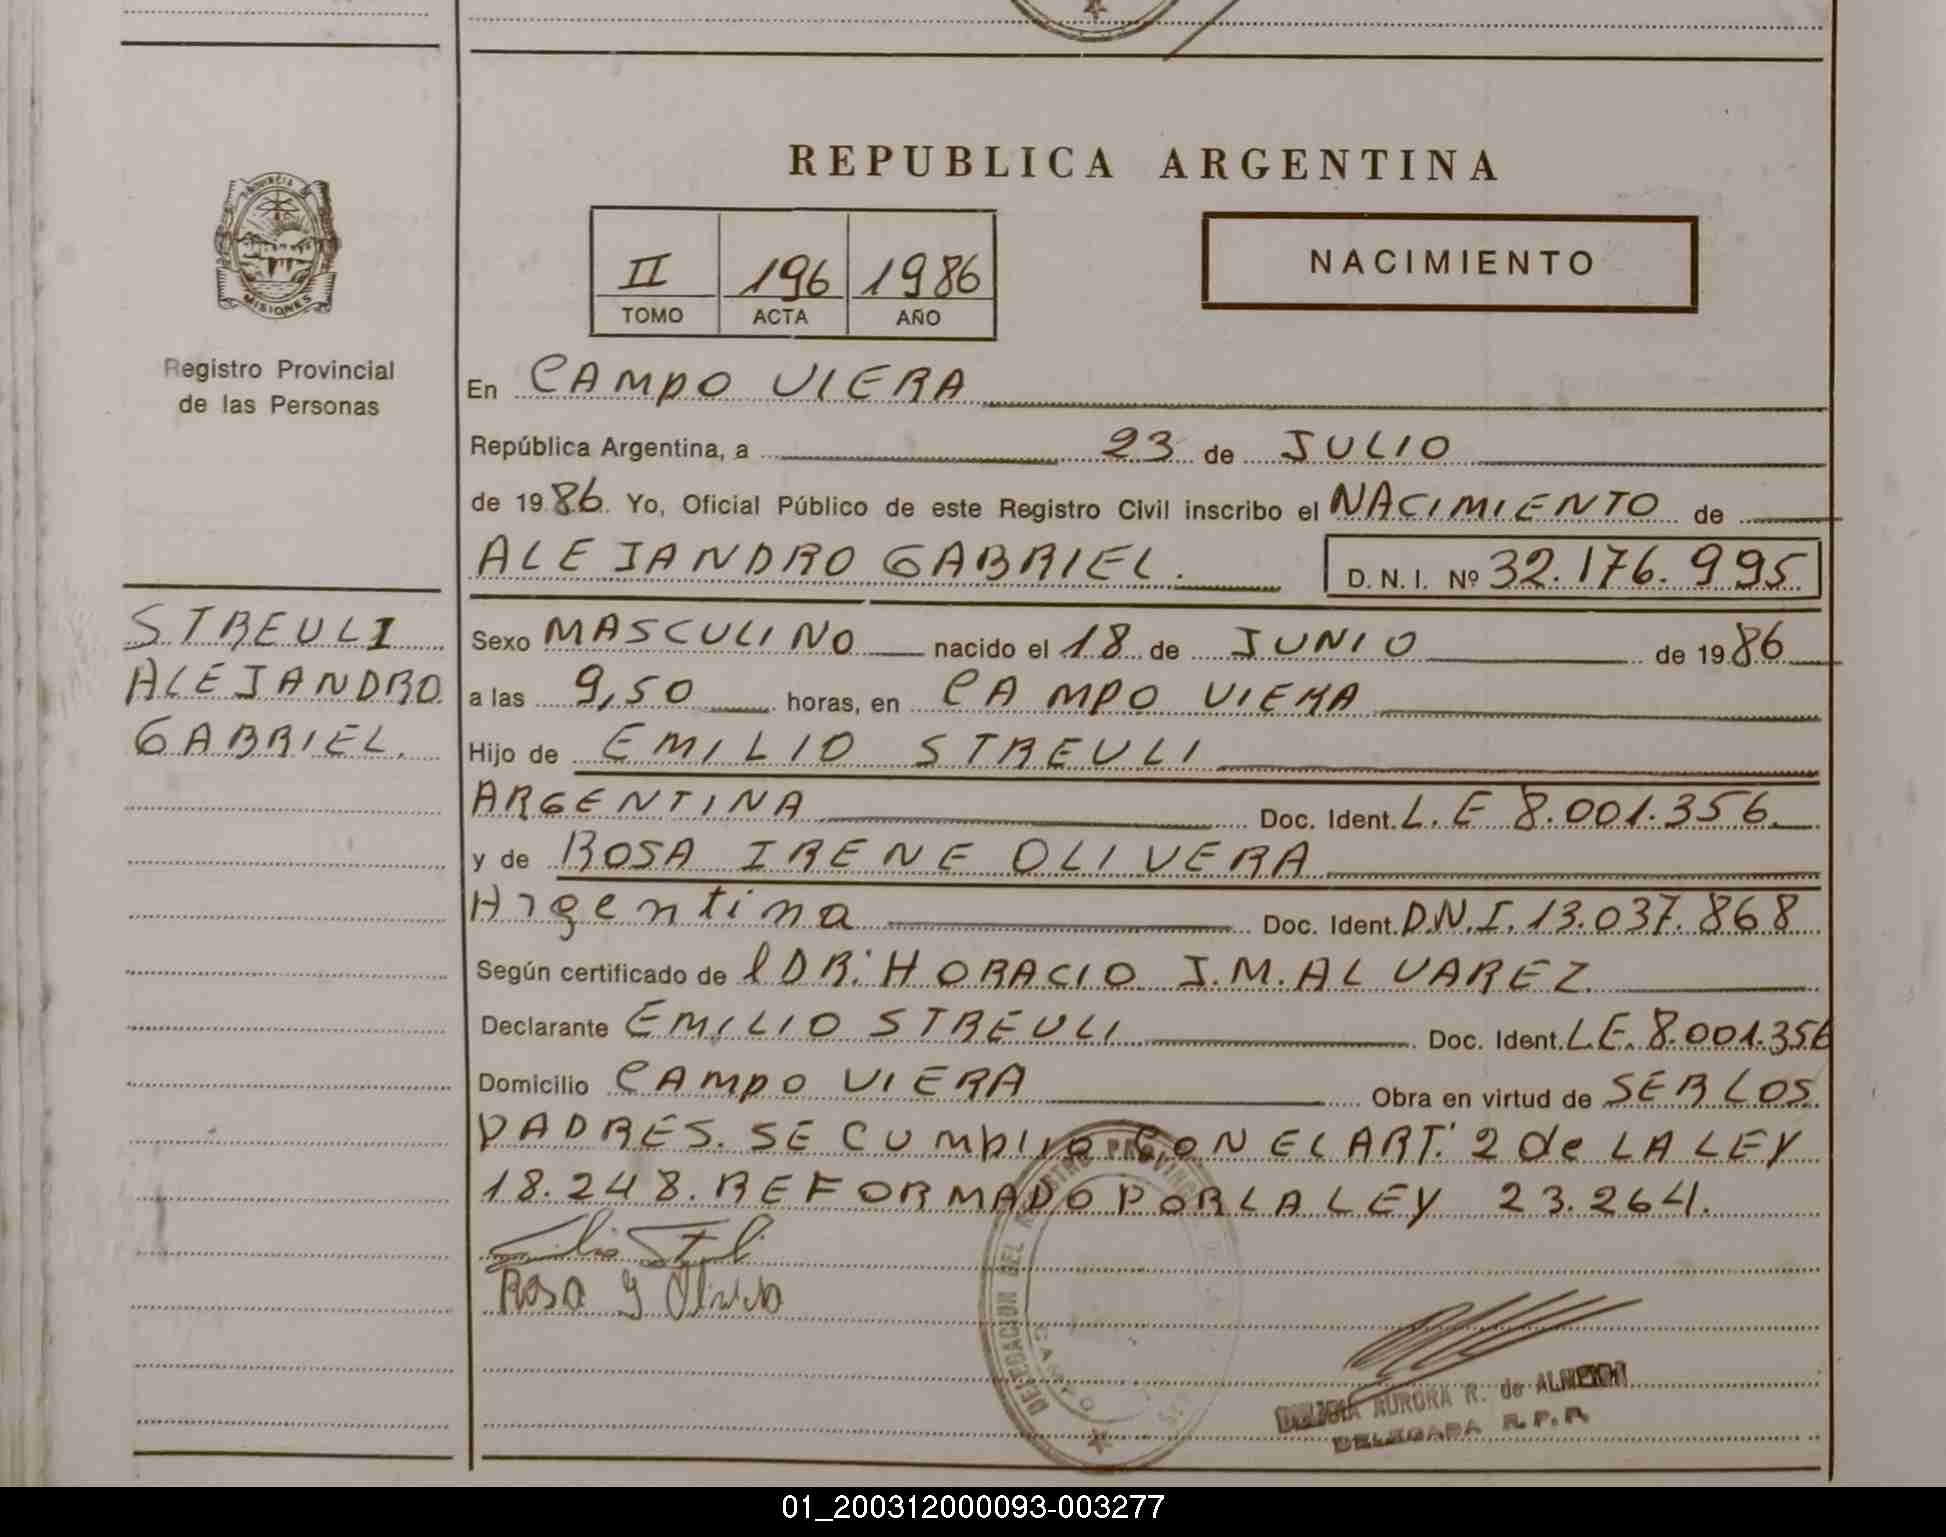 PROVINCIA DE
MISIONES
Registro Provincial
de las Personas
STREULI
ALEJANDRO
GABRIEL.
REPUBLICA ARGENTINA
II 196 1986
TOMO ACTA AÑO
NACIMIENTO
En CAMPO VIERA
República Argentina, a 23 de JULIO
de 1986. Yo, Oficial Público de este Registro Civil inscribo el NACIMIENTO de
ALEJANDRO GABRIEL. D. N. I. Nº 32.176.995
Sexo MASCULINO nacido el 18 de JUNIO de 1986
a las 9,50 horas, en CAMPO VIERA
Hijo de EMILIO STREULI
ARGENTINA Doc. Ident. L.E 8.001.356.
y de ROSA IRENE OLIVERA
Argentina Doc. Ident. D.N.I. 13.037.868
Según certificado de l DR: HORACIO J.M. ALVAREZ.
Declarante EMILIO STREULI Doc. Ident. L.E. 8.001.356
Domicilio CAMPO VIERA Obra en virtud de SER LOS
PADRES. SE CUMPLIO CON EL ART: 2 de LA LEY
18.248. REFORMADO POR LA LEY 23.264.
Emilio Streuli
Rosa I Olivera
DELEGACION DEL REGISTRO PROVINCIAL
CAMPO
AURORA R. de ALMEIDA
DELEGADA R. P. P.
01_200312000093-003277